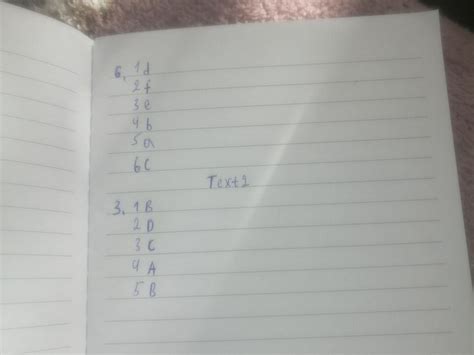 6. 1 d
2 f
3 e
4 b
5 a
6 C
Text 2
3. 1 B
2 D
3 C
4 A
5 B